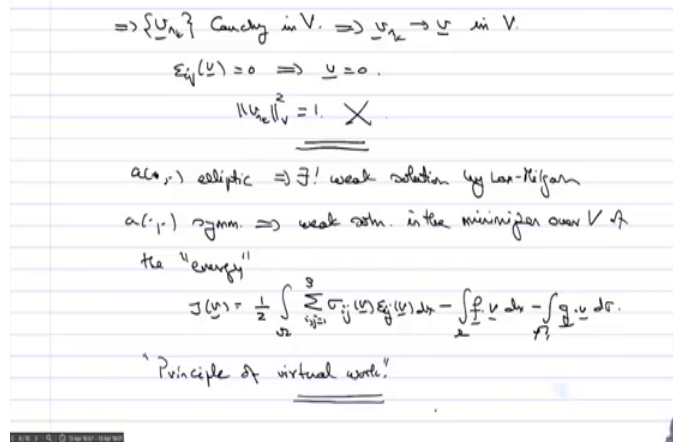 => {v_{n_k}} Cauchy in V. => v_{n_k} → v in V.
ε_{ij}(v) = 0 => v = 0.
||v_{n_k}||_V^2 = 1. X
a(·,·) elliptic => ∃! weak solution by Lax-Milgram
a(·,·) symm. => weak soln. is the minimizer over V of
the "energy"
J(v) = 1/2 ∫_Ω Σ_{i,j=1}^3 σ_{ij}(v) ε_{ij}(v) dx - ∫_Ω f·v dx - ∫_{Γ_1} g·v dσ.
"Principle of virtual work."